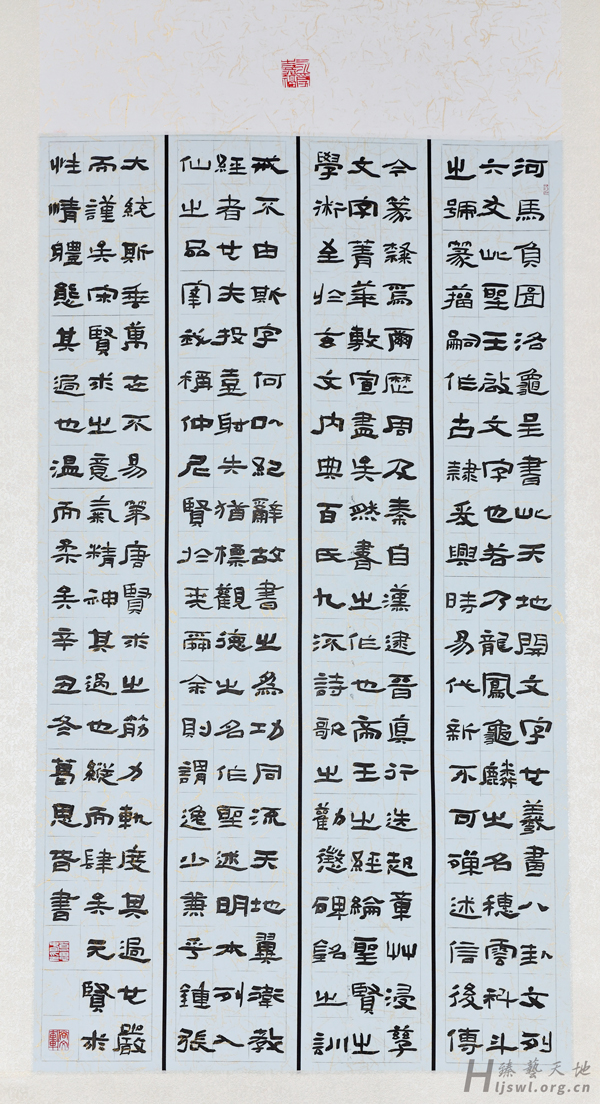 河馬負圖洛龜呈書此天地開文字也羲畫八卦文列
六爻此聖王啟文字也若乃龍鳳龜麟之名穗雲科斗
之號篆籀嗣作古隸爰興時易代新不可殫述信後傳
今篆隸焉爾歷周及秦自漢逮晉真行迭起章艸浸孳
文字菁華敷宣盡矣然書之作也帝王之經綸聖賢之
學術至於玄文內典百氏九流詩歌之勸懲碑銘之訓
戒不由斯字何以紀辭故書之為功同流天地翼衛教
經者也夫投壺射矢猶標觀德之名作聖述明本列入
仙之品宰我稱仲尼賢於堯舜余則謂逸少兼乎鍾張
大統斯垂萬世不易第唐賢求之筋力軌度其過也嚴
而謹矣宋賢求之意氣精神其過也縱而肆矣元賢求
性情體態其過也溫而柔矣辛丑冬葛恩書
臻藝天地
Hljswl.org.cn